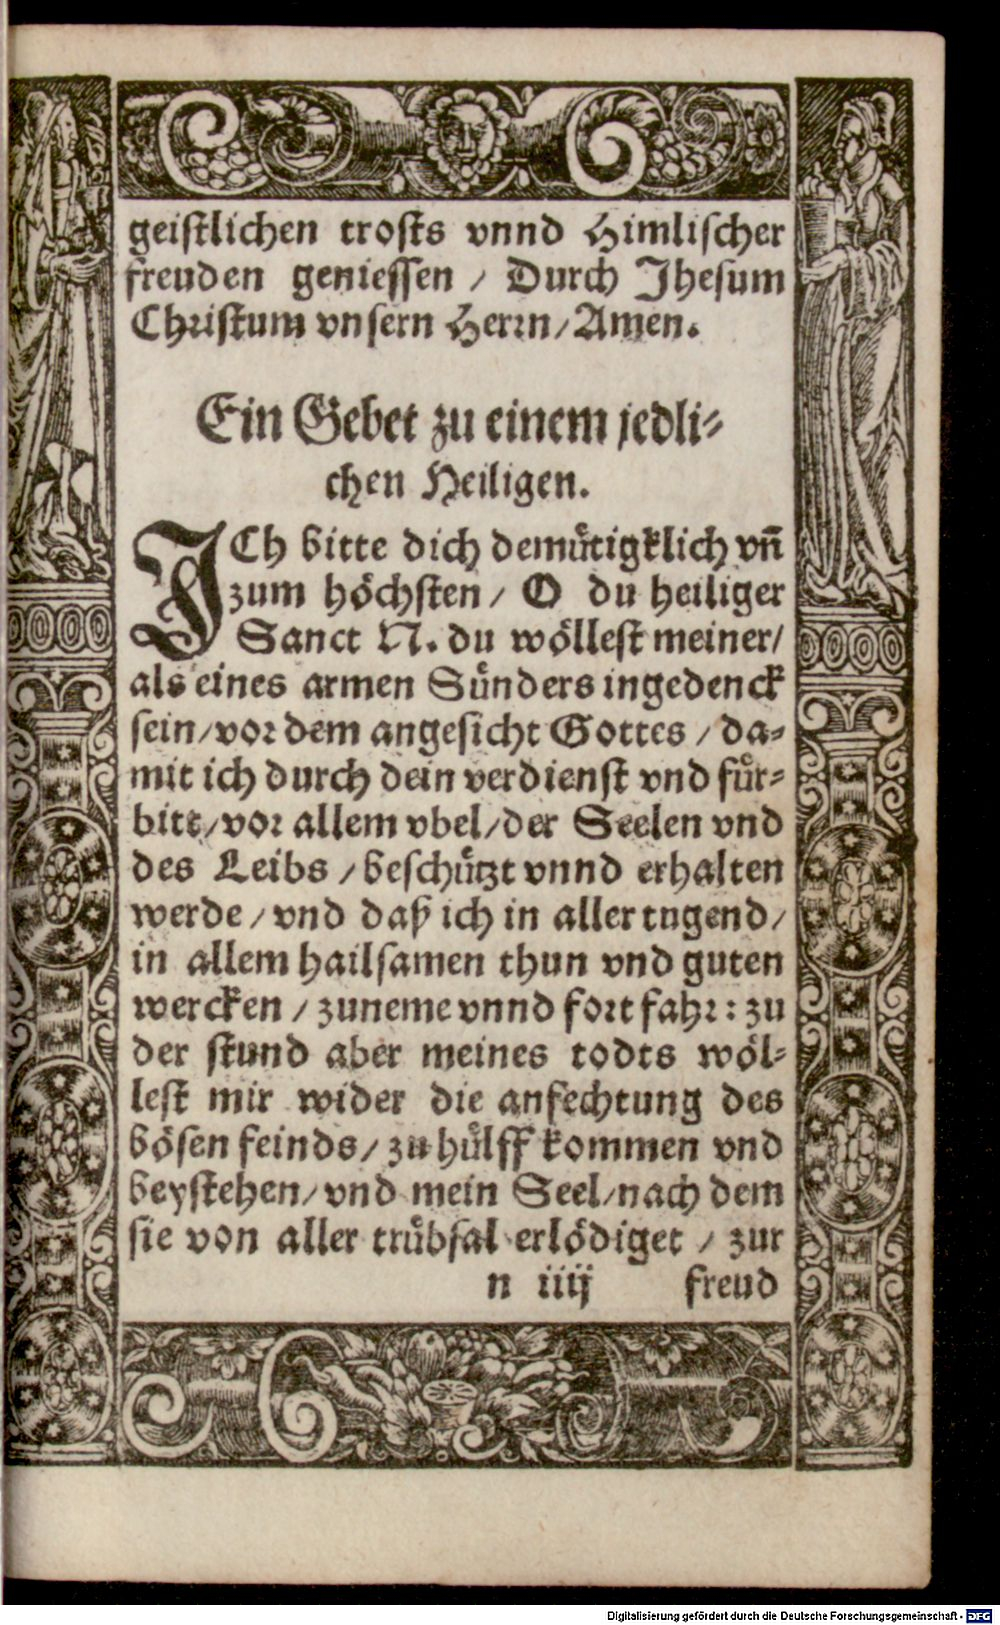 geistlichen trosts vnnd Himlischer
freuden geniessen / Durch Jhesum
Christum vnsern Herrn / Amen.
Ein Gebet zu einem jedli⸗
chen Heiligen.
JCh bitte dich demuͤtigklich vn̄
zum hoͤchsten / O du heiliger
Sanct N. du woͤllest meiner /
als eines armen Suͤnders ingedenck
sein / vor dem angesicht Gottes / da⸗
mit ich durch dein verdienst vnd fuͤr⸗
bitt / vor allem vbel / der Seelen vnd
des Leibs / beschuͤtzt vnnd erhalten
werde / vnd daß ich in aller tugend /
in allem hailsamen thun vnd guten
wercken / zuneme vnnd fort fahr: zu
der stund aber meines todts woͤl⸗
lest mir wider die anfechtung des
boͤsen feinds / zu huͤlff kommen vnd
beystehen / vnd mein Seel / nach dem
sie von aller truͤbsal erloͤdiget / zur
n iiij freud
Digitalisierung gefördert durch die Deutsche Forschungsgemeinschaft - DFG